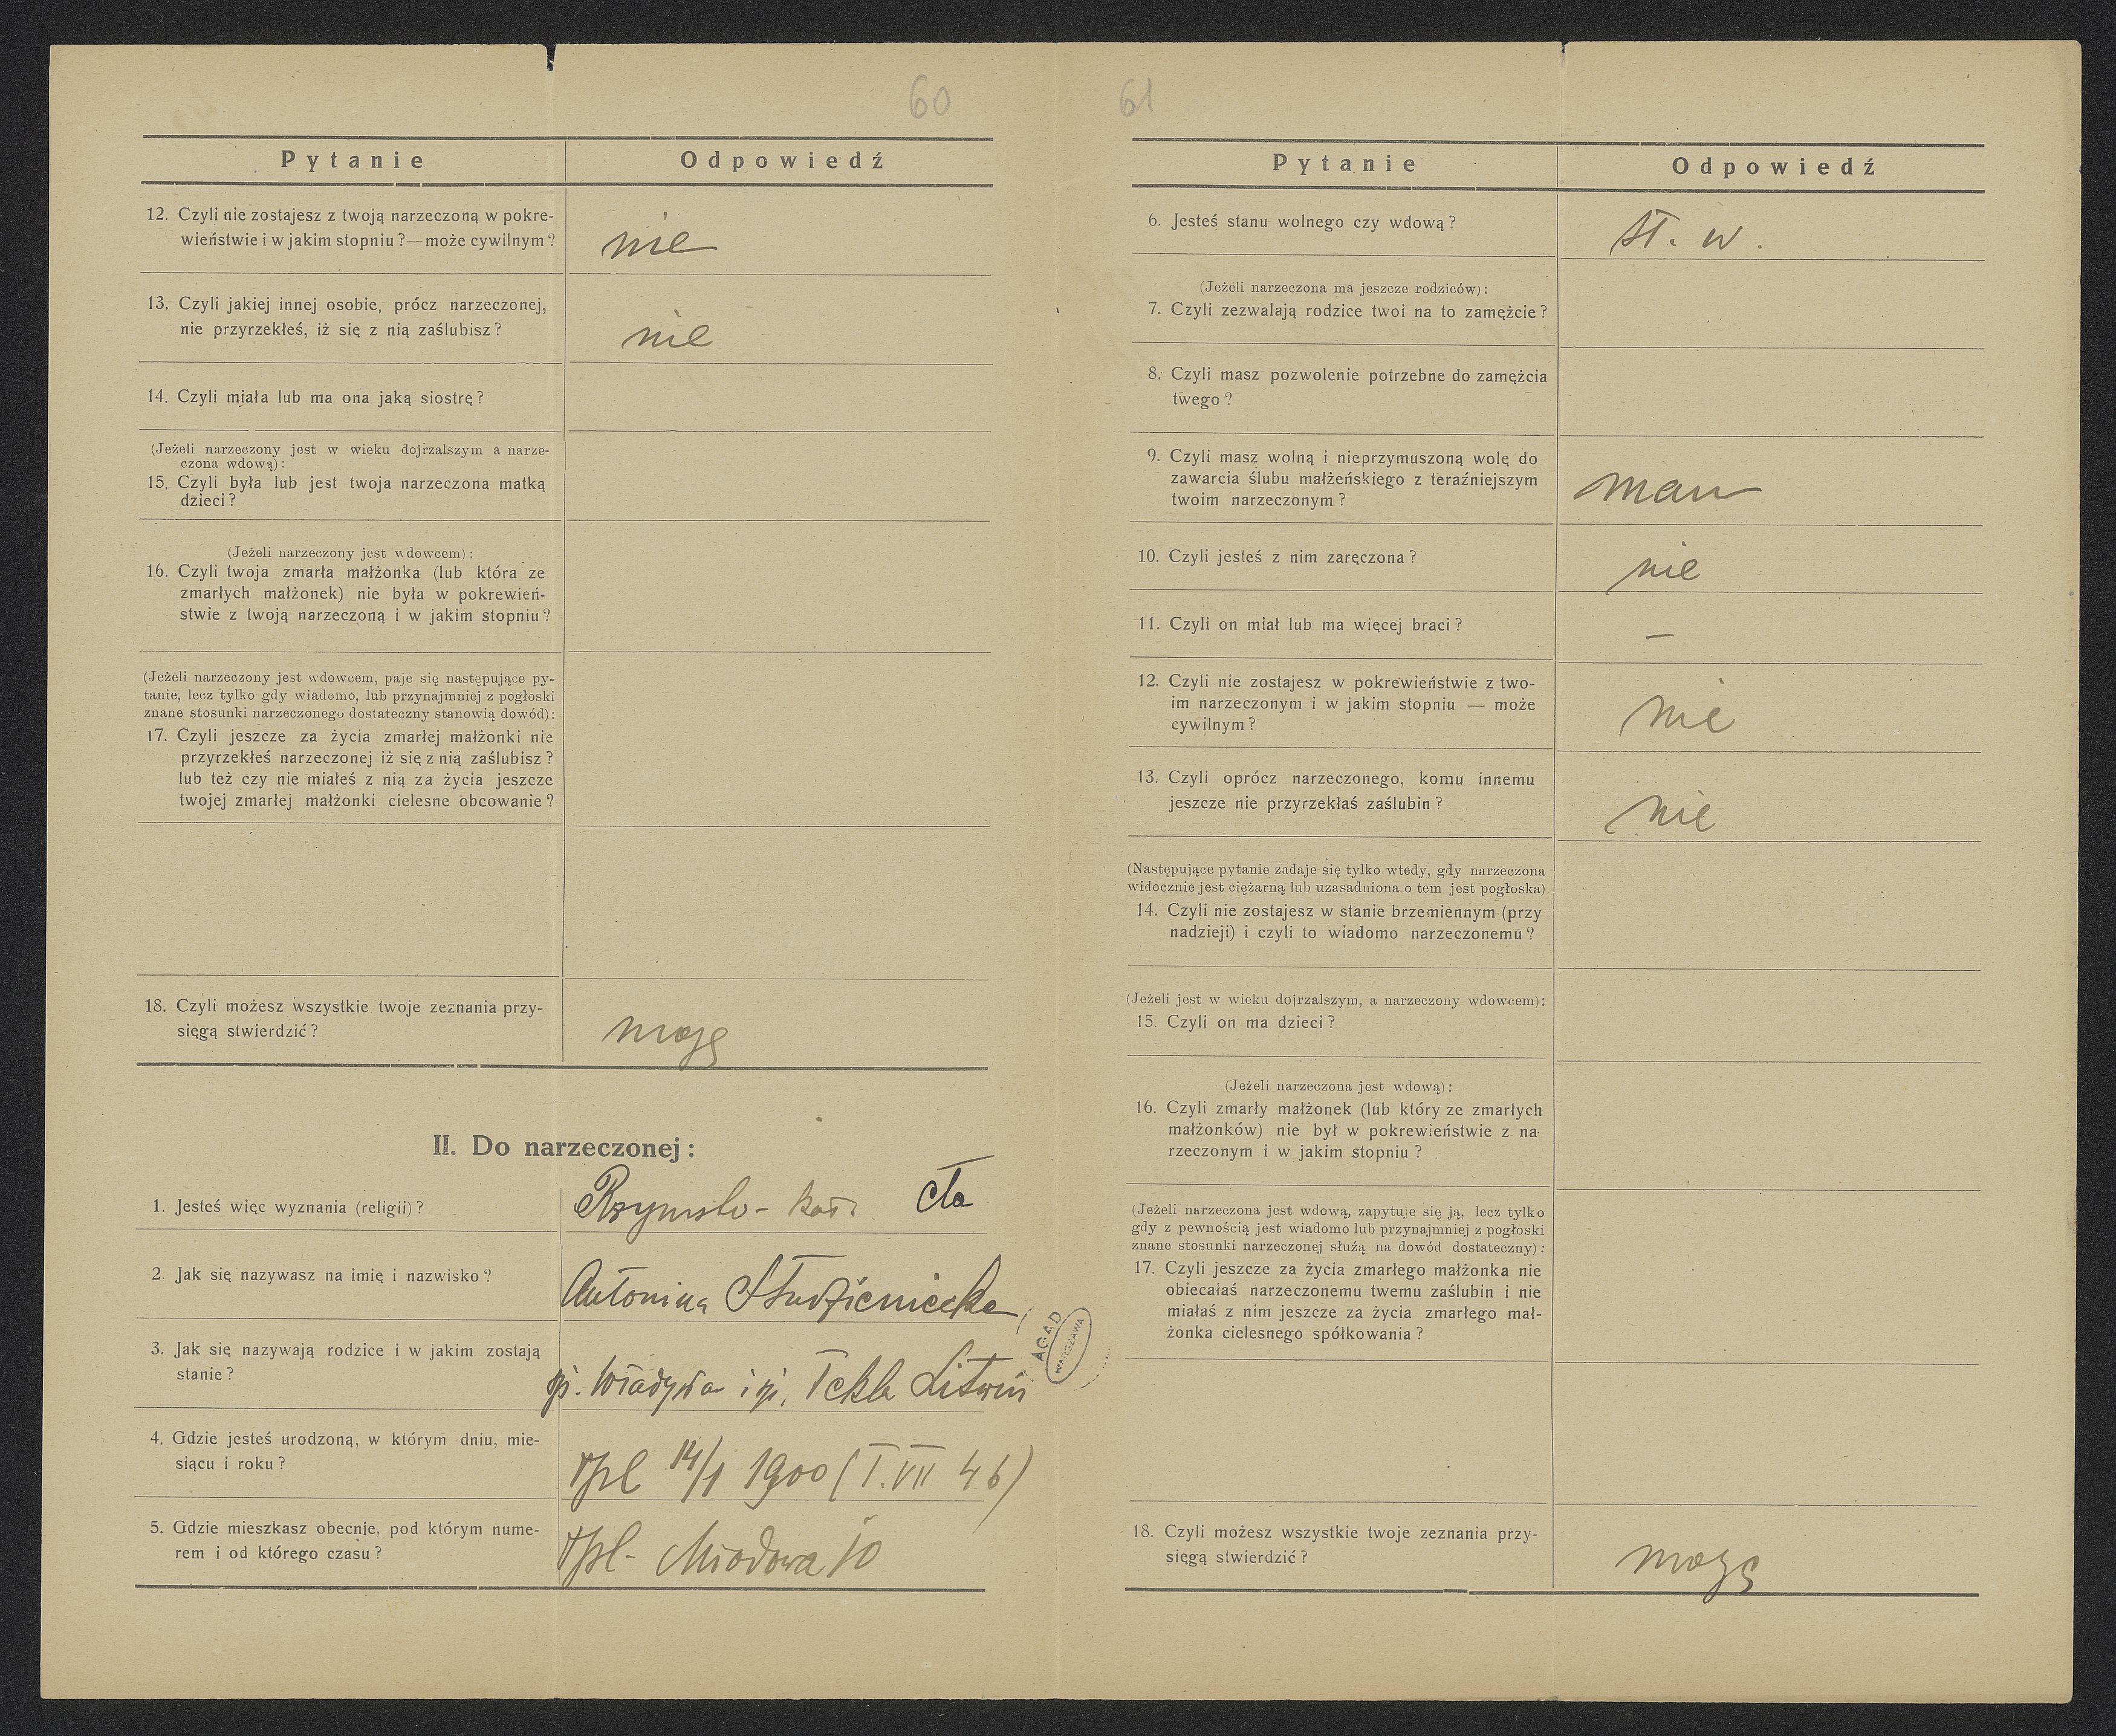 60
Pytanie
Odpowiedź
12. Czyli nie zostajesz z twoją narzeczoną w pokre-
wieństwie i w jakim stopniu ?— może cywilnym ?
nie
13. Czyli jakiej innej osobie, prócz narzeczonej,
nie przyrzekłeś, iż się z nią zaślubisz ?
nie
14. Czyli miała lub ma ona jaką siostrę ?
(Jeżeli narzeczony jest w wieku dojrzalszym a narze-
czona wdową) :
15. Czyli była lub jest twoja narzeczona matką
dzieci ?
(Jeżeli narzeczony jest wdowcem) :
16. Czyli twoja zmarła małżonka (lub która ze
zmarłych małżonek) nie była w pokrewień-
stwie z twoją narzeczoną i w jakim stopniu ?
(Jeżeli narzeczony jest wdowcem, paje się następujące py-
tanie, lecz tylko gdy wiadomo, lub przynajmniej z pogłoski
znane stosunki narzeczonego dostateczny stanowią dowód) :
17. Czyli jeszcze za życia zmarłej małżonki nie
przyrzekłeś narzeczonej iż się z nią zaślubisz ?
lub też czy nie miałeś z nią za życia jeszcze
twojej zmarłej małżonki cielesne obcowanie ?
18. Czyli możesz wszystkie twoje zeznania przy-
sięgą stwierdzić ?
mogę
II. Do narzeczonej :
1. Jesteś więc wyznania (religii) ?
Rzymsko - kat. cła
2. Jak się nazywasz na imię i nazwisko ?
Antonina Studzieniecka
3. Jak się nazywają rodzice i w jakim zostają
stanie ?
śp. Władysła i śp. Tekla Litwin
4. Gdzie jesteś urodzoną, w którym dniu, mie-
siącu i roku ?
Tpl 14/1 1900 (T. VII 46)
5. Gdzie mieszkasz obecnie, pod którym nume-
rem i od którego czasu ?
Tpl - Miodowa 10
AGAD
WARSZAWA
61
Pytanie
Odpowiedź
6. Jesteś stanu wolnego czy wdową ?
st. w.
(Jeżeli narzeczona ma jeszcze rodziców) :
7. Czyli zezwalają rodzice twoi na to zamężcie ?
8. Czyli masz pozwolenie potrzebne do zamężcia
twego ?
9. Czyli masz wolną i nieprzymuszoną wolę do
zawarcia ślubu małżeńskiego z teraźniejszym
twoim narzeczonym ?
mam
10. Czyli jesteś z nim zaręczona ?
nie
11. Czyli on miał lub ma więcej braci ?
—
12. Czyli nie zostajesz w pokrewieństwie z two-
im narzeczonym i w jakim stopniu — może
cywilnym ?
nie
13. Czyli oprócz narzeczonego, komu innemu
jeszcze nie przyrzekłaś zaślubin ?
nie
(Następujące pytanie zadaje się tylko wtedy, gdy narzeczona
widocznie jest ciężarną lub uzasadniona o tem jest pogłoska)
14. Czyli nie zostajesz w stanie brzemiennym (przy
nadzieji) i czyli to wiadomo narzeczonemu ?
(Jeżeli jest w wieku dojrzalszym, a narzeczony wdowcem) :
15. Czyli on ma dzieci ?
(Jeżeli narzeczona jest wdową) :
16. Czyli zmarły małżonek (lub który ze zmarłych
małżonków) nie był w pokrewieństwie z na-
rzeczonym i w jakim stopniu ?
(Jeżeli narzeczona jest wdową, zapytuje się ją, lecz tylko
gdy z pewnością jest wiadomo lub przynajmniej z pogłoski
znane stosunki narzeczonej służą na dowód dostateczny) :
17. Czyli jeszcze za życia zmarłego małżonka nie
obiecałaś narzeczonemu twemu zaślubin i nie
miałaś z nim jeszcze za życia zmarłego mał-
żonka cielesnego spółkowania ?
18. Czyli możesz wszystkie twoje zeznania przy-
sięgą stwierdzić ?
mogę